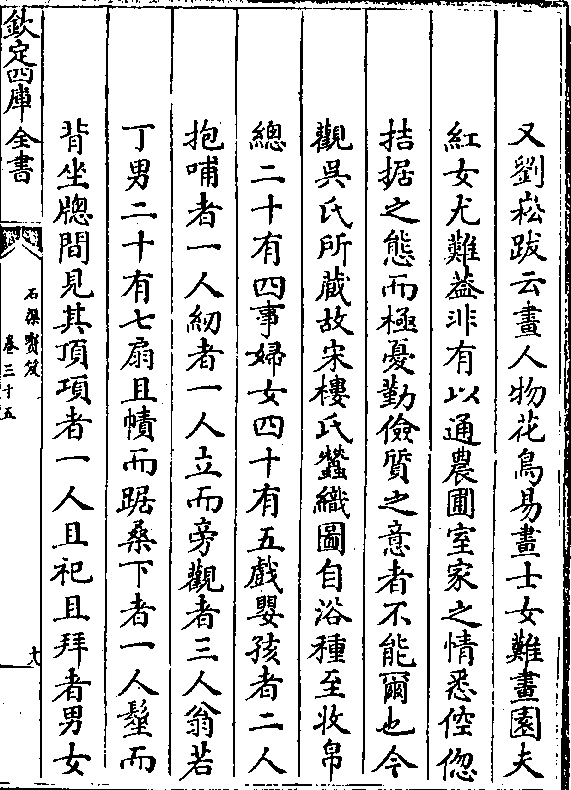 又劉崧跋云畫人物花鳥易畫士女難畫園夫
紅女尤難葢非有以通農圃室家之情悉倥偬
拮据之態而極憂勤儉質之意者不能爾也今
觀吳氏所蔵故宋樓氏蠶織圖自浴種至收帛
總二十有四事婦女四十有五戲嬰孩者二人
抱哺者一人紉者一人立而旁觀者三人翁若
丁男二十有七扇且幘而踞桑下者一人髽而
背坐牕間見其頂項者一人且祀且拜者男女
欽定四庫全書
石渠寳笈
卷三十五